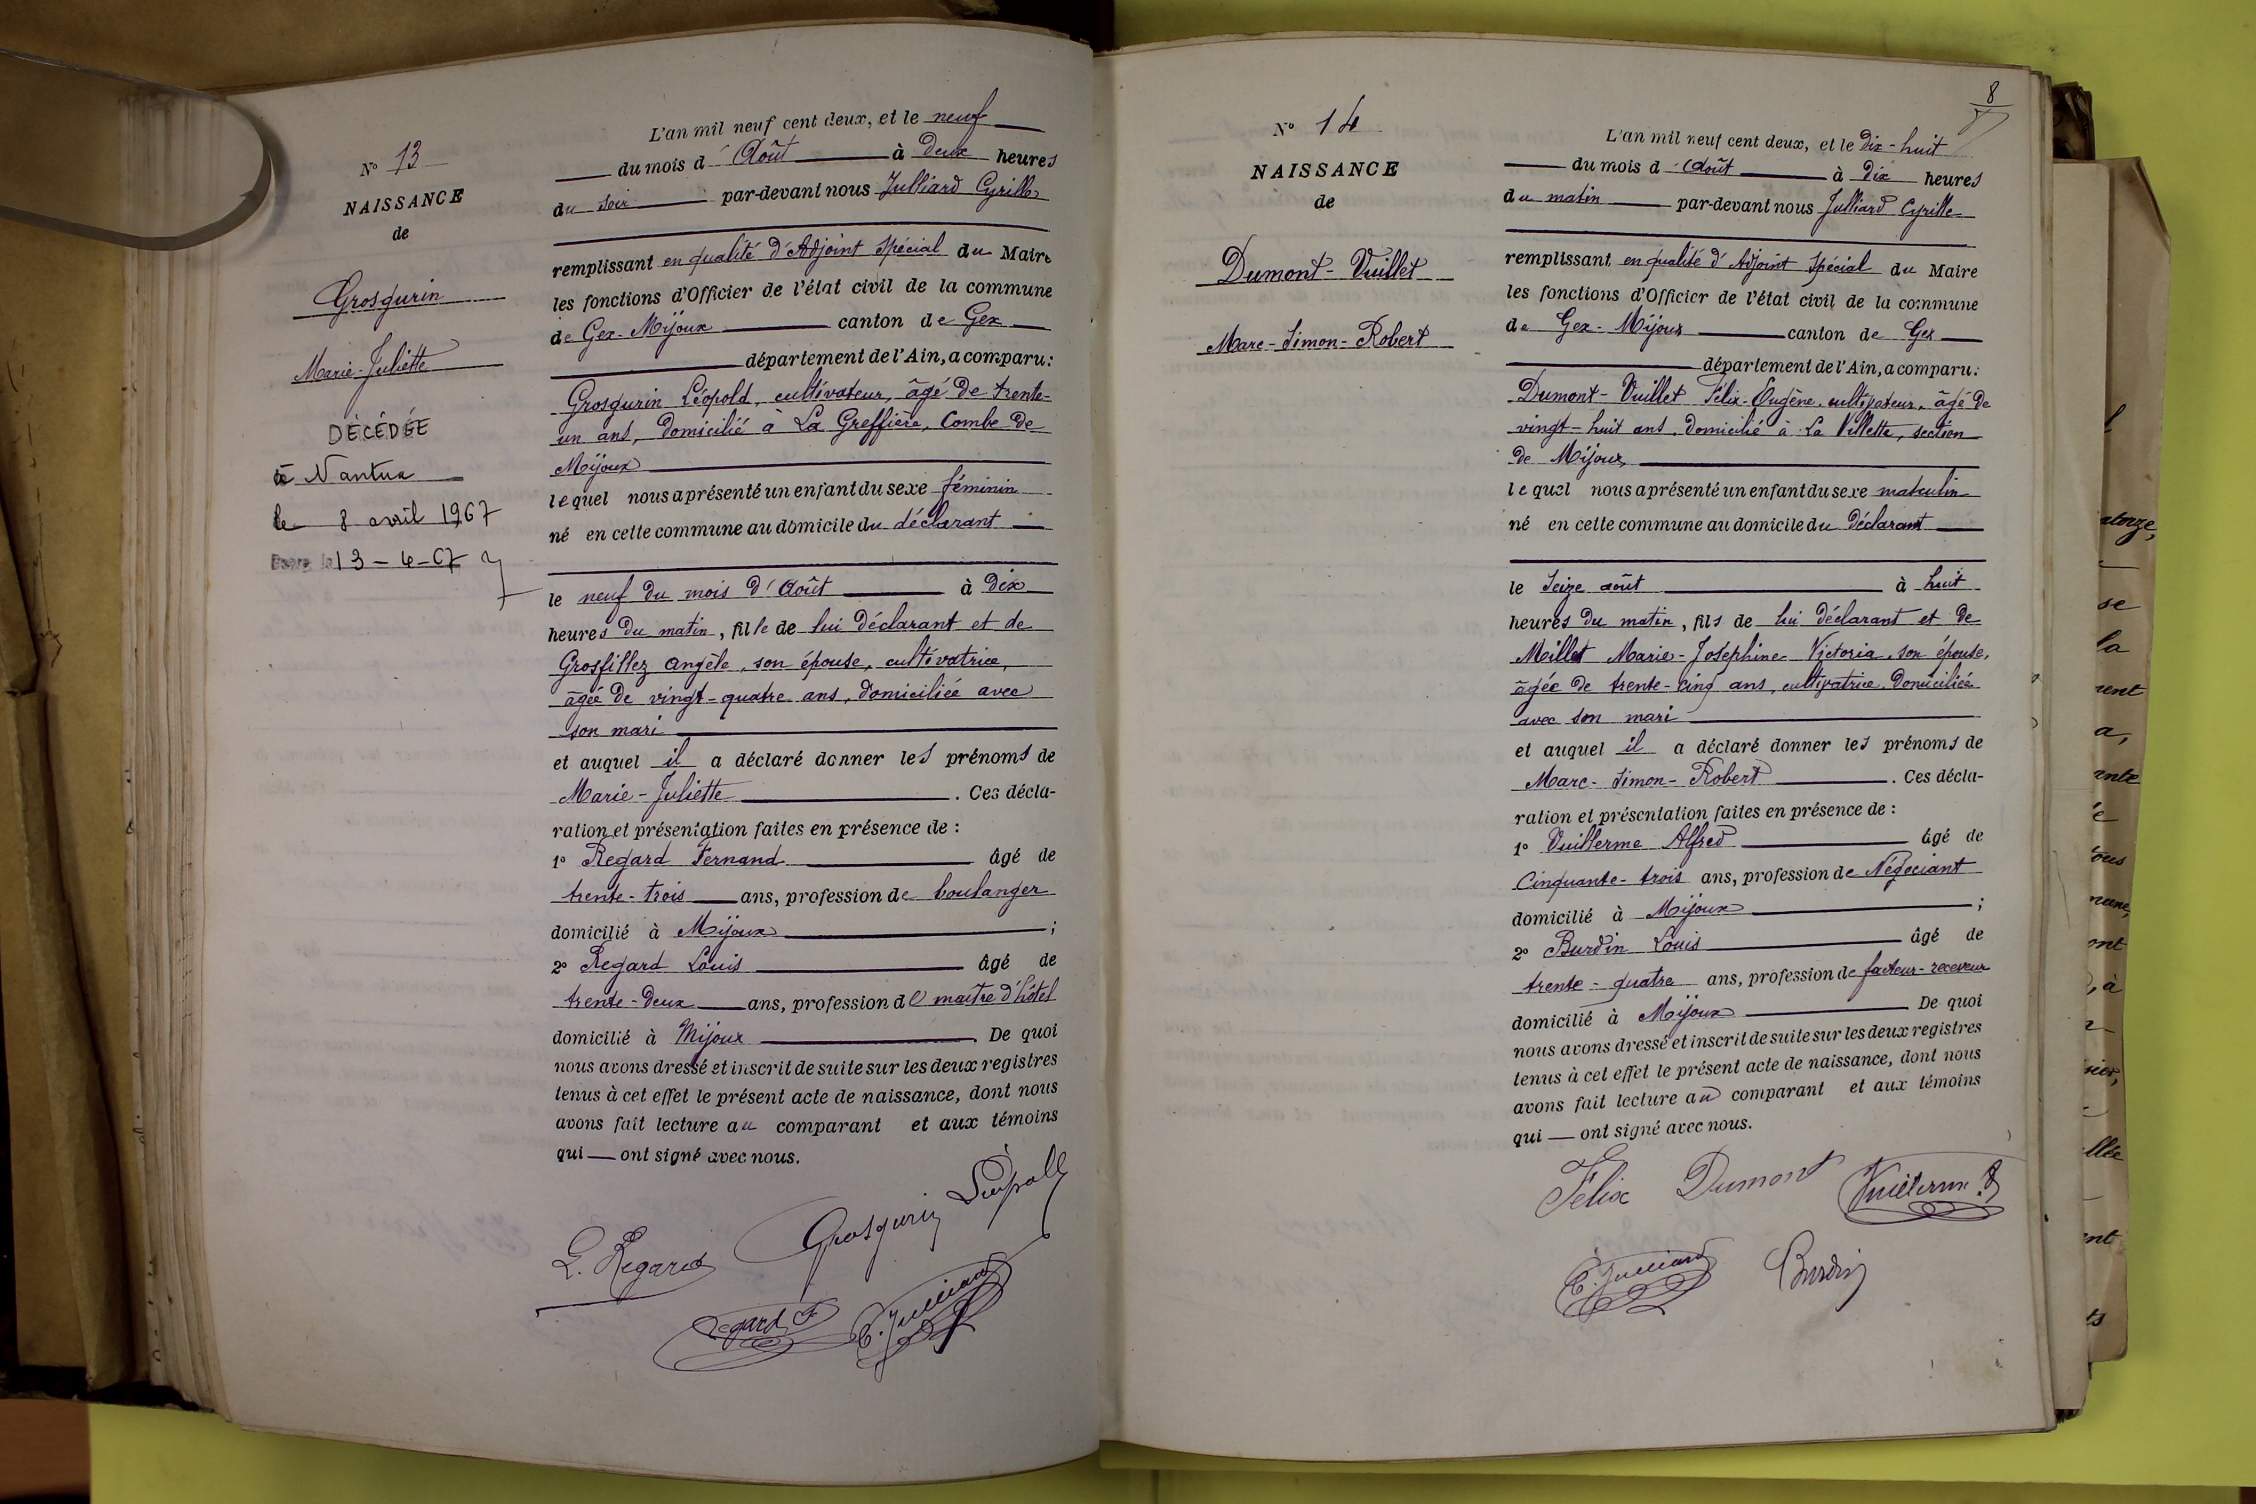 N° 13
NAISSANCE
de
Grosgurin
Marie-Juliette
DÉCÉDÉE
à Nantua
le 8 avril 1967
13-4-67
L'an mil neuf cent deux, et le neuf
du mois d'Août à deux heures
du soir par-devant nous Julliard Cyrille
remplissant en qualité d'Adjoint Spécial du Maire
les fonctions d'Officier de l'état civil de la commune
de Gex-Mijoux canton de Gex
département de l'Ain, a comparu:
Grosgurin Léopold, cultivateur, âgé de trente-
un ans, domicilié à La Greffière, Combe de
Mijoux
lequel nous a présenté un enfant du sexe féminin
né en cette commune au domicile du déclarant
le neuf du mois d'Août à dix
heures du matin, fille de lui déclarant et de
Grosfillez Angèle, son épouse, cultivatrice,
âgée de vingt-quatre ans, domiciliée avec
son mari
et auquel il a déclaré donner les prénoms de
Marie-Juliette. Ces décla-
ration et présentation faites en présence de :
1° Regard Fernand âgé de
trente-trois ans, profession de boulanger
domicilié à Mijoux ;
2° Regard Louis âgé de
trente-deux ans, profession de maître d'hôtel
domicilié à Mijoux De quoi
nous avons dressé et inscrit de suite sur les deux registres
tenus à cet effet le présent acte de naissance, dont nous
avons fait lecture au comparant et aux témoins
qui ont signé avec nous.
Grosgurin Léopold
L. Regard
Regard F
C. Julliard
8
N° 14
NAISSANCE
de
Dumont-Vuillet
Marc-Simon-Robert
L'an mil neuf cent deux, et le dix-huit
du mois d'Août à dix heures
du matin par-devant nous Julliard Cyrille
remplissant en qualité d'Adjoint Spécial du Maire
les fonctions d'Officier de l'état civil de la commune
de Gex-Mijoux canton de Gex
département de l'Ain, a comparu:
Dumont-Vuillet Félix-Eugène, cultivateur, âgé de
vingt-huit ans, domicilié à La Villette, section
de Mijoux
lequel nous a présenté un enfant du sexe masculin
né en cette commune au domicile du déclarant
le Seize août à huit
heures du matin, fils de lui déclarant et de
Millet Marie-Joséphine Victoria, son épouse,
âgée de trente-cinq ans, cultivatrice, domiciliée
avec son mari
et auquel il a déclaré donner les prénoms de
Marc-Simon-Robert . Ces décla-
ration et présentation faites en présence de :
1° Vuillerme Alfred âgé de
Cinquante-trois ans, profession de Négociant
domicilié à Mijoux ;
2° Burdin Louis âgé de
trente-quatre ans, profession de facteur-receveur
domicilié à Mijoux De quoi
nous avons dressé et inscrit de suite sur les deux registres
tenus à cet effet le présent acte de naissance, dont nous
avons fait lecture au comparant et aux témoins
qui ont signé avec nous.
Félix Dumont Vuillerme A
C. Julliard Burdin